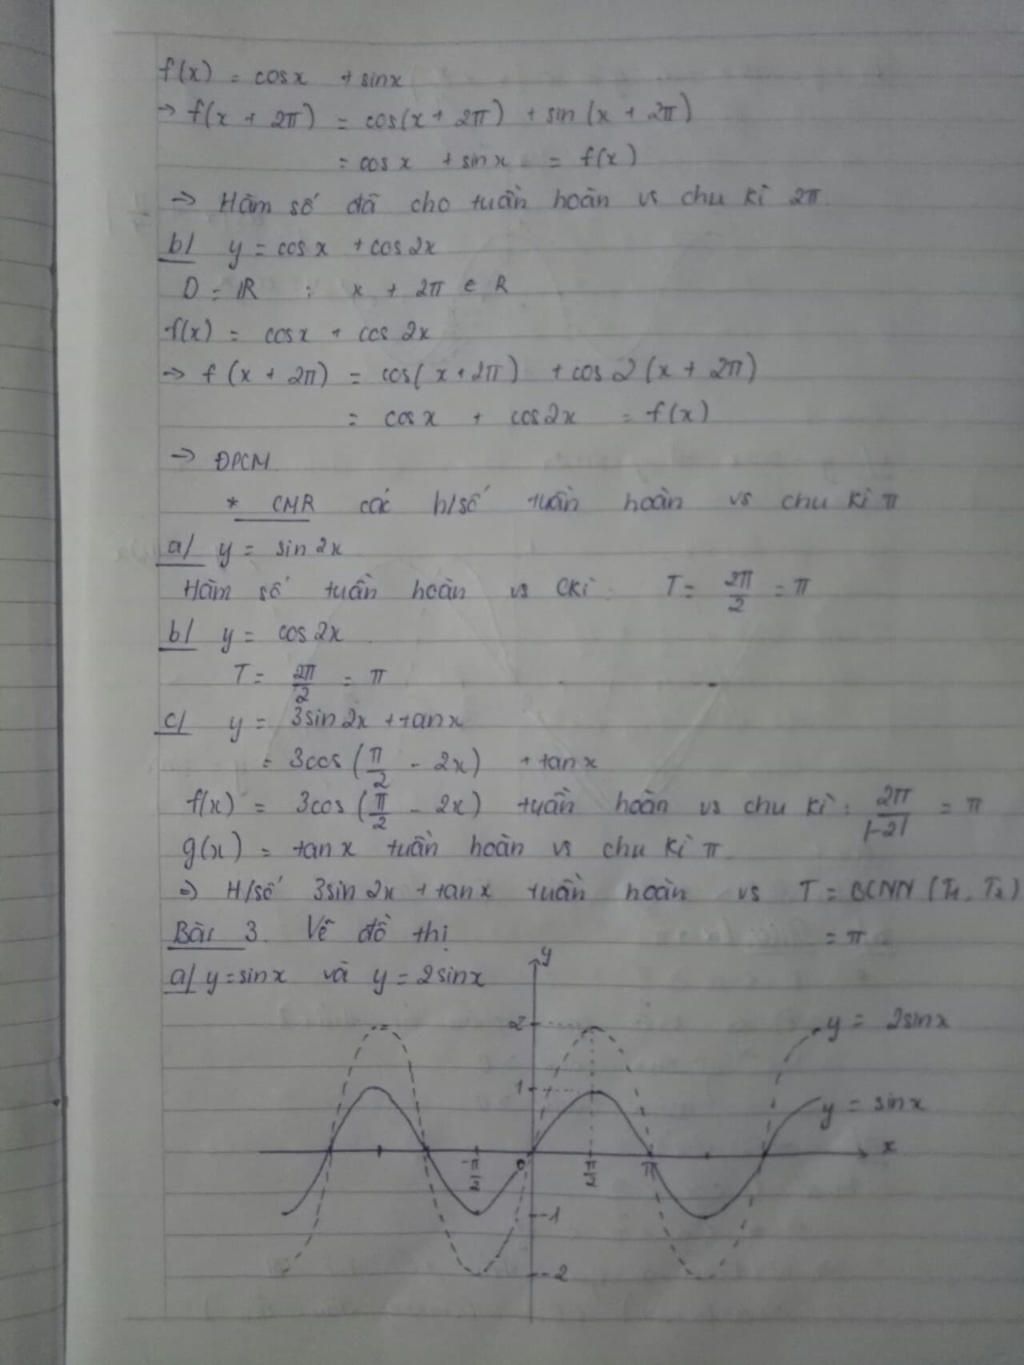 f(x) = cosx + sinx
→ f(x + 2π) = cos(x + 2π) + sin(x + 2π)
= cosx + sinx = f(x)
→ Hàm số đã cho tuần hoàn vs chu kì 2π
b/ y = cosx + cos2x
D = R : x + 2π ∈ R
f(x) = cosx + cos 2x
→ f(x + 2π) = cos(x + 2π) + cos 2(x + 2π)
= cosx + cos2x = f(x)
→ ĐPCM
* CMR các h/số tuần hoàn vs chu kì π
a/ y = sin2x
Hàm số tuần hoàn vs CKì : T = 2π/2 = π
b/ y = cos2x
T = 2π/2 = π
c/ y = 3sin2x + tanx
= 3cos(π/2 - 2x) + tanx
f(x) = 3cos(π/2 - 2x) tuần hoàn vs chu kì : 2π/|-2| = π
g(x) = tanx tuần hoàn vs chu kì π
⇒ H/số 3sin2x + tanx tuần hoàn vs T = BCNN (T₁, T₂)
= π
Bài 3. Vẽ đồ thị
a/ y = sinx và y = 2sinx
y
2
y = 2sinx
1
y = sinx
-π/2
0
π/2
π
x
-1
-2